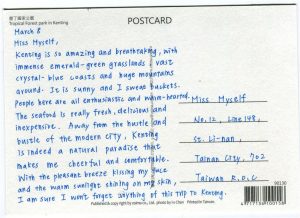 墾丁國家公園
Tropical Forest park in Kenting
POSTCARD
March 8
Miss Myself,
Kenting is so amazing and breathtaking, with
immense emerald-green grasslands, vast
crystal-blue coasts and huge mountains
around. It is sunny and I sweat buckets.
People here are all enthusiastic and warm-hearted.
The seafood is really fresh, delicious and
inexpensive. Away from the hustle and
bustle of the modern city, Kenting
is indeed a natural paradise that
makes me cheerful and comfortable.
With the pleasant breeze kissing my face
and the warm sunlight shining on my skin,
I am sure I won't forget anything of this trip to Kenting.
Miss Myself
No.12, Line 148,
St. Li-nan,
Tainan City, 702
Taiwan R.O.C
00130
4 717716 100138